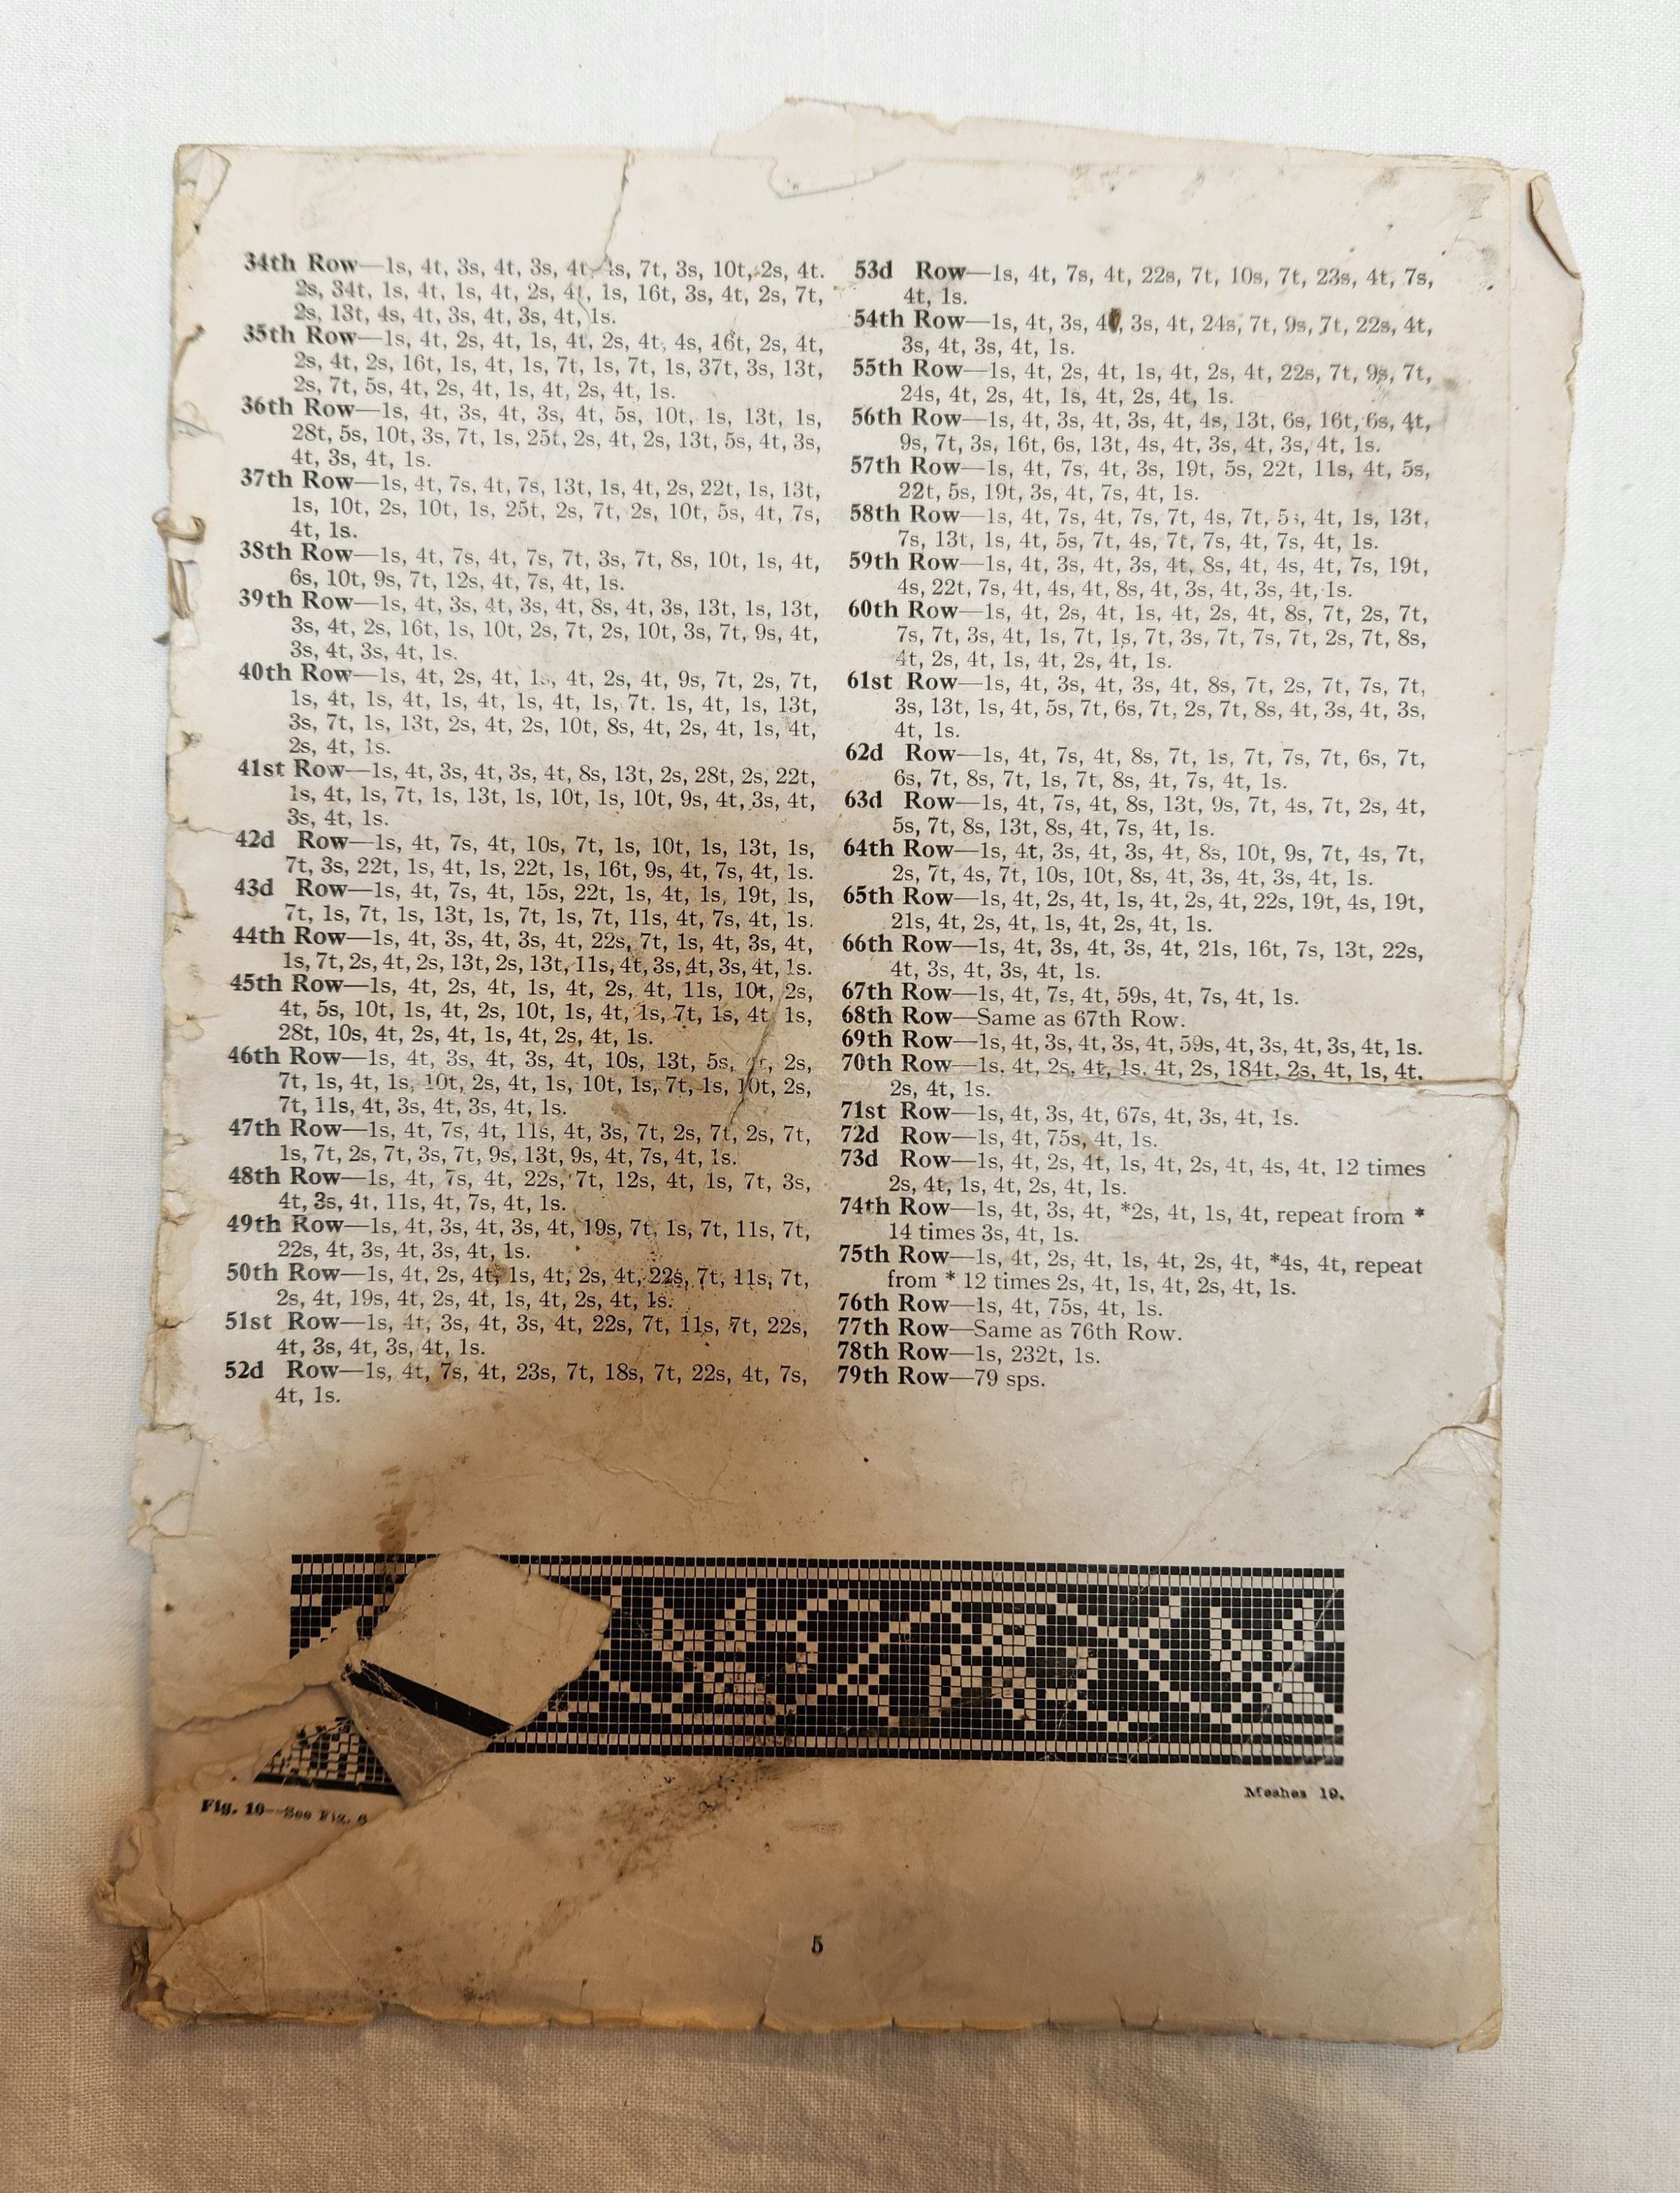 34th Row—1s, 4t, 3s, 4t, 3s, 4t, 7t, 3s, 10t, 2s, 4t.
2s, 34t, 1s, 4t, 1s, 4t, 2s, 4t, 1s, 16t, 3s, 4t, 2s, 7t,
2s, 13t, 4s, 4t, 3s, 4t, 3s, 4t, 1s.
35th Row—1s, 4t, 2s, 4t, 1s, 4t, 2s, 4t, 4s, 16t, 2s, 4t,
2s, 4t, 2s, 16t, 1s, 4t, 1s, 7t, 1s, 7t, 1s, 37t, 3s, 13t,
2s, 7t, 5s, 4t, 2s, 4t, 1s, 4t, 2s, 4t, 1s.
36th Row—1s, 4t, 3s, 4t, 3s, 4t, 5s, 10t, 1s, 13t, 1s,
28t, 5s, 10t, 3s, 7t, 1s, 25t, 2s, 4t, 2s, 13t, 5s, 4t, 3s,
4t, 3s, 4t, 1s.
37th Row—1s, 4t, 7s, 4t, 7s, 13t, 1s, 4t, 2s, 22t, 1s, 13t,
1s, 10t, 2s, 10t, 1s, 25t, 2s, 7t, 2s, 10t, 5s, 4t, 7s,
4t, 1s.
38th Row—1s, 4t, 7s, 4t, 7s, 7t, 3s, 7t, 8s, 10t, 1s, 4t,
6s, 10t, 9s, 7t, 12s, 4t, 7s, 4t, 1s.
39th Row—1s, 4t, 3s, 4t, 3s, 4t, 8s, 4t, 3s, 13t, 1s, 13t,
3s, 4t, 2s, 16t, 1s, 10t, 2s, 7t, 2s, 10t, 3s, 7t, 9s, 4t,
3s, 4t, 3s, 4t, 1s.
40th Row—1s, 4t, 2s, 4t, 1s, 4t, 2s, 4t, 9s, 7t, 2s, 7t,
1s, 4t, 1s, 4t, 1s, 4t, 1s, 4t, 1s, 7t. 1s, 4t, 1s, 13t,
3s, 7t, 1s, 13t, 2s, 4t, 2s, 10t, 8s, 4t, 2s, 4t, 1s, 4t,
2s, 4t, 1s.
41st Row—1s, 4t, 3s, 4t, 3s, 4t, 8s, 13t, 2s, 28t, 2s, 22t,
1s, 4t, 1s, 7t, 1s, 13t, 1s, 10t, 1s, 10t, 9s, 4t, 3s, 4t,
3s, 4t, 1s.
42d Row—1s, 4t, 7s, 4t, 10s, 7t, 1s, 10t, 1s, 13t, 1s,
7t, 3s, 22t, 1s, 4t, 1s, 22t, 1s, 16t, 9s, 4t, 7s, 4t, 1s.
43d Row—1s, 4t, 7s, 4t, 15s, 22t, 1s, 4t, 1s, 19t, 1s,
7t, 1s, 7t, 1s, 13t, 1s, 7t, 1s, 7t, 11s, 4t, 7s, 4t, 1s.
44th Row—1s, 4t, 3s, 4t, 3s, 4t, 22s, 7t, 1s, 4t, 3s, 4t,
1s, 7t, 2s, 4t, 2s, 13t, 2s, 13t, 11s, 4t, 3s, 4t, 3s, 4t, 1s.
45th Row—1s, 4t, 2s, 4t, 1s, 4t, 2s, 4t, 11s, 10t, 2s,
4t, 5s, 10t, 1s, 4t, 2s, 10t, 1s, 4t, 1s, 7t, 1s, 4t, 1s,
28t, 10s, 4t, 2s, 4t, 1s, 4t, 2s, 4t, 1s.
46th Row—1s, 4t, 3s, 4t, 3s, 4t, 10s, 13t, 5s, 2s,
7t, 1s, 4t, 1s, 10t, 2s, 4t, 1s, 10t, 1s, 7t, 1s, 10t, 2s,
7t, 11s, 4t, 3s, 4t, 3s, 4t, 1s.
47th Row—1s, 4t, 7s, 4t, 11s, 4t, 3s, 7t, 2s, 7t, 2s, 7t,
1s, 7t, 2s, 7t, 3s, 7t, 9s, 13t, 9s, 4t, 7s, 4t, 1s.
48th Row—1s, 4t, 7s, 4t, 22s, 7t, 12s, 4t, 1s, 7t, 3s,
4t, 3s, 4t, 11s, 4t, 7s, 4t, 1s.
49th Row—1s, 4t, 3s, 4t, 3s, 4t, 19s, 7t, 1s, 7t, 11s, 7t,
22s, 4t, 3s, 4t, 3s, 4t, 1s.
50th Row—1s, 4t, 2s, 4t, 1s, 4t, 2s, 4t, 22s, 7t, 11s, 7t,
2s, 4t, 19s, 4t, 2s, 4t, 1s, 4t, 2s, 4t, 1s.
51st Row—1s, 4t, 3s, 4t, 3s, 4t, 22s, 7t, 11s, 7t, 22s,
4t, 3s, 4t, 3s, 4t, 1s.
52d Row—1s, 4t, 7s, 4t, 23s, 7t, 18s, 7t, 22s, 4t, 7s,
4t, 1s.
53d Row—1s, 4t, 7s, 4t, 22s, 7t, 10s, 7t, 23s, 4t, 7s,
4t, 1s.
54th Row—1s, 4t, 3s, 3s, 4t, 24s, 7t, 9s, 7t, 22s, 4t,
3s, 4t, 3s, 4t, 1s.
55th Row—1s, 4t, 2s, 4t, 1s, 4t, 2s, 4t, 22s, 7t, 9s, 7t,
24s, 4t, 2s, 4t, 1s, 4t, 2s, 4t, 1s.
56th Row—1s, 4t, 3s, 4t, 3s, 4t, 4s, 13t, 6s, 16t, 6s, 4t,
9s, 7t, 3s, 16t, 6s, 13t, 4s, 4t, 3s, 4t, 3s, 4t, 1s.
57th Row—1s, 4t, 7s, 4t, 3s, 19t, 5s, 22t, 11s, 4t, 5s,
22t, 5s, 19t, 3s, 4t, 7s, 4t, 1s.
58th Row—1s, 4t, 7s, 4t, 7s, 7t, 4s, 7t, 5s, 4t, 1s, 13t,
7s, 13t, 1s, 4t, 5s, 7t, 4s, 7t, 7s, 4t, 7s, 4t, 1s.
59th Row—1s, 4t, 3s, 4t, 3s, 4t, 8s, 4t, 4s, 4t, 7s, 19t,
4s, 22t, 7s, 4t, 4s, 4t, 8s, 4t, 3s, 4t, 3s, 4t, 1s.
60th Row—1s, 4t, 2s, 4t, 1s, 4t, 2s, 4t, 8s, 7t, 2s, 7t,
7s, 7t, 3s, 4t, 1s, 7t, 1s, 7t, 3s, 7t, 7s, 7t, 2s, 7t, 8s,
4t, 2s, 4t, 1s, 4t, 2s, 4t, 1s.
61st Row—1s, 4t, 3s, 4t, 3s, 4t, 8s, 7t, 2s, 7t, 7s, 7t,
3s, 13t, 1s, 4t, 5s, 7t, 6s, 7t, 2s, 7t, 8s, 4t, 3s, 4t, 3s,
4t, 1s.
62d Row—1s, 4t, 7s, 4t, 8s, 7t, 1s, 7t, 7s, 7t, 6s, 7t,
6s, 7t, 8s, 7t, 1s, 7t, 8s, 4t, 7s, 4t, 1s.
63d Row—1s, 4t, 7s, 4t, 8s, 13t, 9s, 7t, 4s, 7t, 2s, 4t,
5s, 7t, 8s, 13t, 8s, 4t, 7s, 4t, 1s.
64th Row—1s, 4t, 3s, 4t, 3s, 4t, 8s, 10t, 9s, 7t, 4s, 7t,
2s, 7t, 4s, 7t, 10s, 10t, 8s, 4t, 3s, 4t, 3s, 4t, 1s.
65th Row—1s, 4t, 2s, 4t, 1s, 4t, 2s, 4t, 22s, 19t, 4s, 19t,
21s, 4t, 2s, 4t, 1s, 4t, 2s, 4t, 1s.
66th Row—1s, 4t, 3s, 4t, 3s, 4t, 21s, 16t, 7s, 13t, 22s,
4t, 3s, 4t, 3s, 4t, 1s.
67th Row—1s, 4t, 7s, 4t, 59s, 4t, 7s, 4t, 1s.
68th Row—Same as 67th Row.
69th Row—1s, 4t, 3s, 4t, 3s, 4t, 59s, 4t, 3s, 4t, 3s, 4t, 1s.
70th Row—1s, 4t, 2s, 4t, 1s, 4t, 2s, 184t, 2s, 4t, 1s, 4t.
2s, 4t, 1s.
71st Row—1s, 4t, 3s, 4t, 67s, 4t, 3s, 4t, 1s.
72d Row—1s, 4t, 75s, 4t, 1s.
73d Row—1s, 4t, 2s, 4t, 1s, 4t, 2s, 4t, 4s, 4t, 12 times
2s, 4t, 1s, 4t, 2s, 4t, 1s.
74th Row—1s, 4t, 3s, 4t, *2s, 4t, 1s, 4t, repeat from *
14 times 3s, 4t, 1s.
75th Row—1s, 4t, 2s, 4t, 1s, 4t, 2s, 4t, *4s, 4t, repeat
from * 12 times 2s, 4t, 1s, 4t, 2s, 4t, 1s.
76th Row—1s, 4t, 75s, 4t, 1s.
77th Row—Same as 76th Row.
78th Row—1s, 232t, 1s.
79th Row—79 sps.
Fig. 10—See Fig. 6
Meshes 19.
5